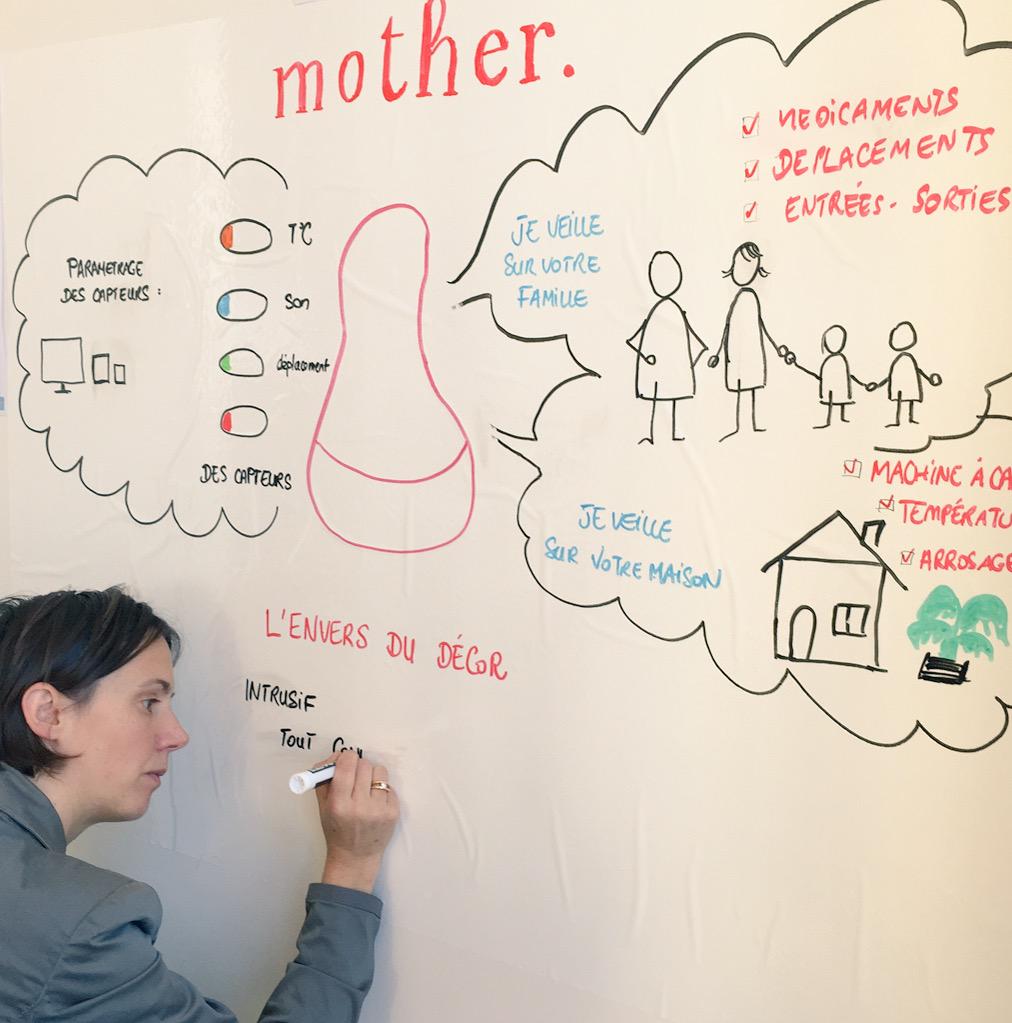 mother.
PARAMETRAGE
DES CAPTEURS :
T°C
Son
déplacement
DES CAPTEURS
JE VEILLE
SUR VOTRE
FAMILLE
MEDICAMENTS
DEPLACEMENTS
ENTRÉES - SORTIES
JE VEILLE
SUR VOTRE MAISON
MACHINE À CA
TEMPÉRATU
ARROSAGE
L'ENVERS DU DÉCOR
INTRUSIF
TOUT